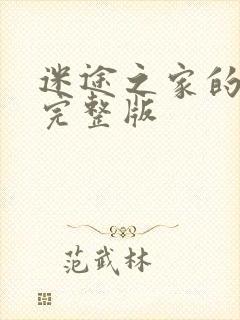 迷途之家的
完整版
范武林